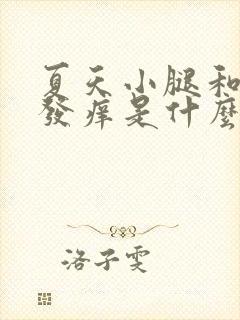 夏天小腿和
發痒是什麼
洛子雯